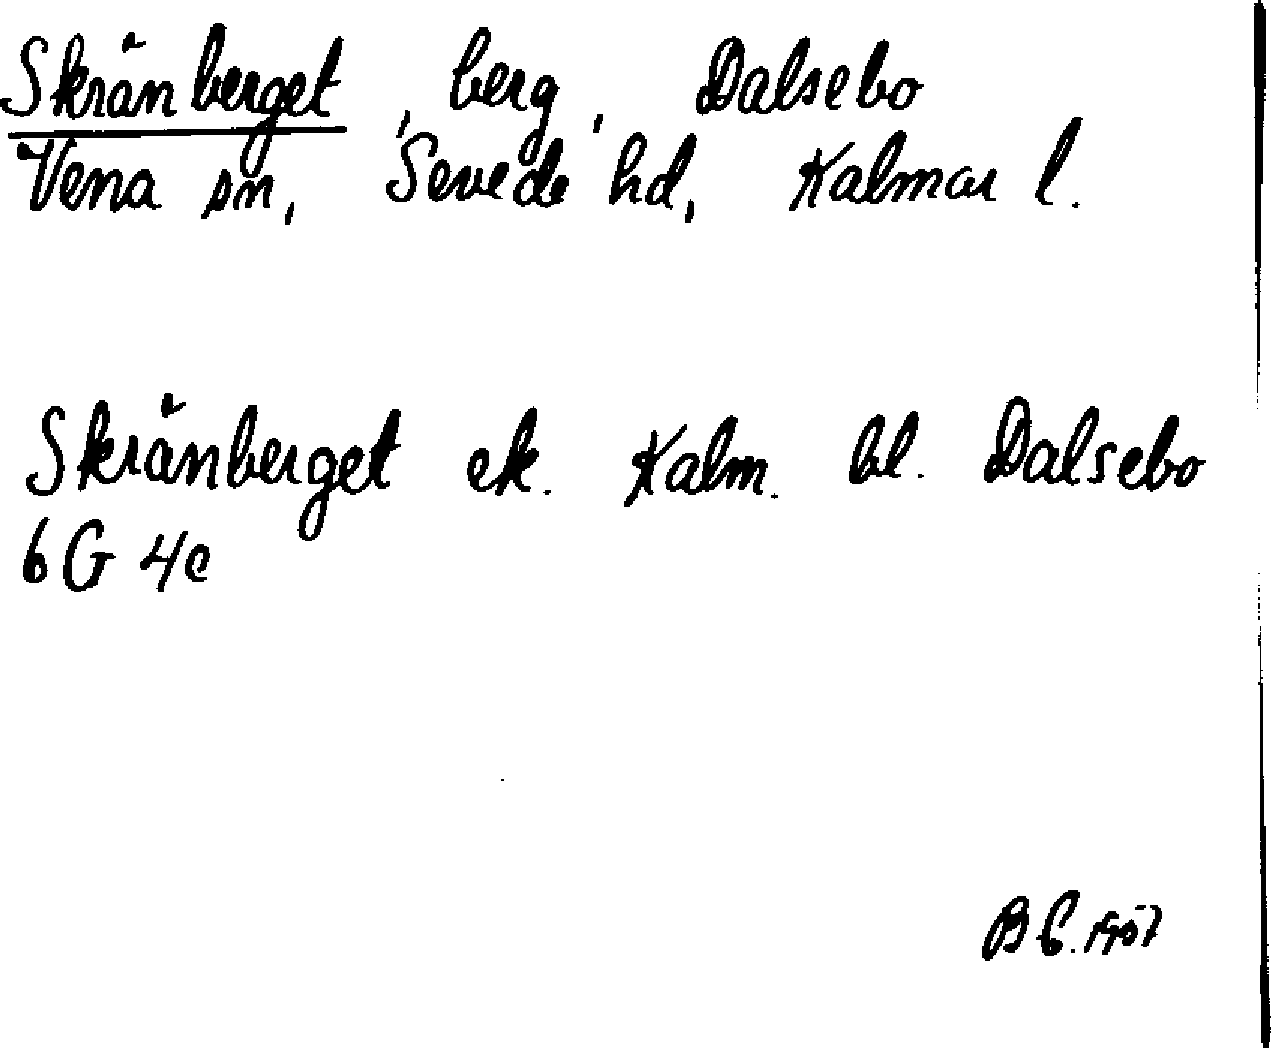 Skränberget, berg, Dalsebo
Vena sn, Sevede hd, Kalmar l.
Skränberget ek. Kalm. bl. Dalsebo
6G 4c